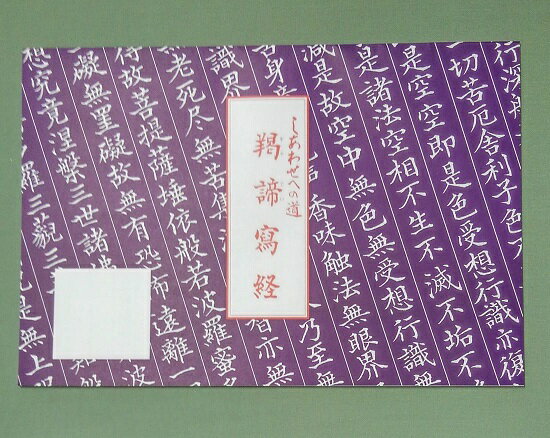 行深般
一切苦厄舎利子色
是空空即是色受想行識亦復
是諸法空相不生不滅不垢不
減是故空中無色無受想行識無
舌身
香味触法無眼界
識界
乃至無
無老死尽無苦集
亦無
得故菩提薩埵依般若波羅蜜多
礙無罣礙故無有恐怖遠離一
想究竟涅槃三世諸
般
波
羅三藐三
是無上
しあわせへの道
羯諦寫経